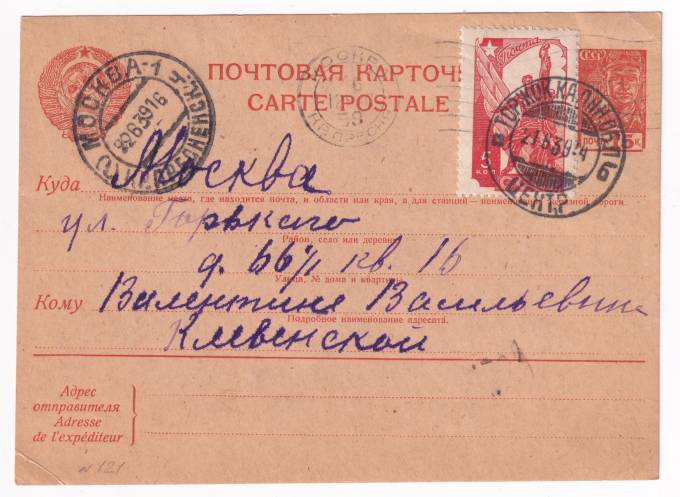 ПОЧТОВАЯ КАРТОЧ
CARTE POSTALE
МОСКВА-1
2263916
МОСКВА
Почта
5
КОП
СССР
ПОЧТА
5К.
ТОРЖОК КАЛИН.ОБЛ
21639
ЦЕНТР
Куда Москва
Наименование места, где находится почта, и области или края, а для станций — наименование железной дороги.
ул. Горького
Район, село или деревня
д. 66/1 кв. 16
Улица, № дома и квартиры
Кому Валентине Васильевне
Подробное наименование адресата.
Клевенской
Адрес
отправителя
Adresse
de l'expéditeur
N 121